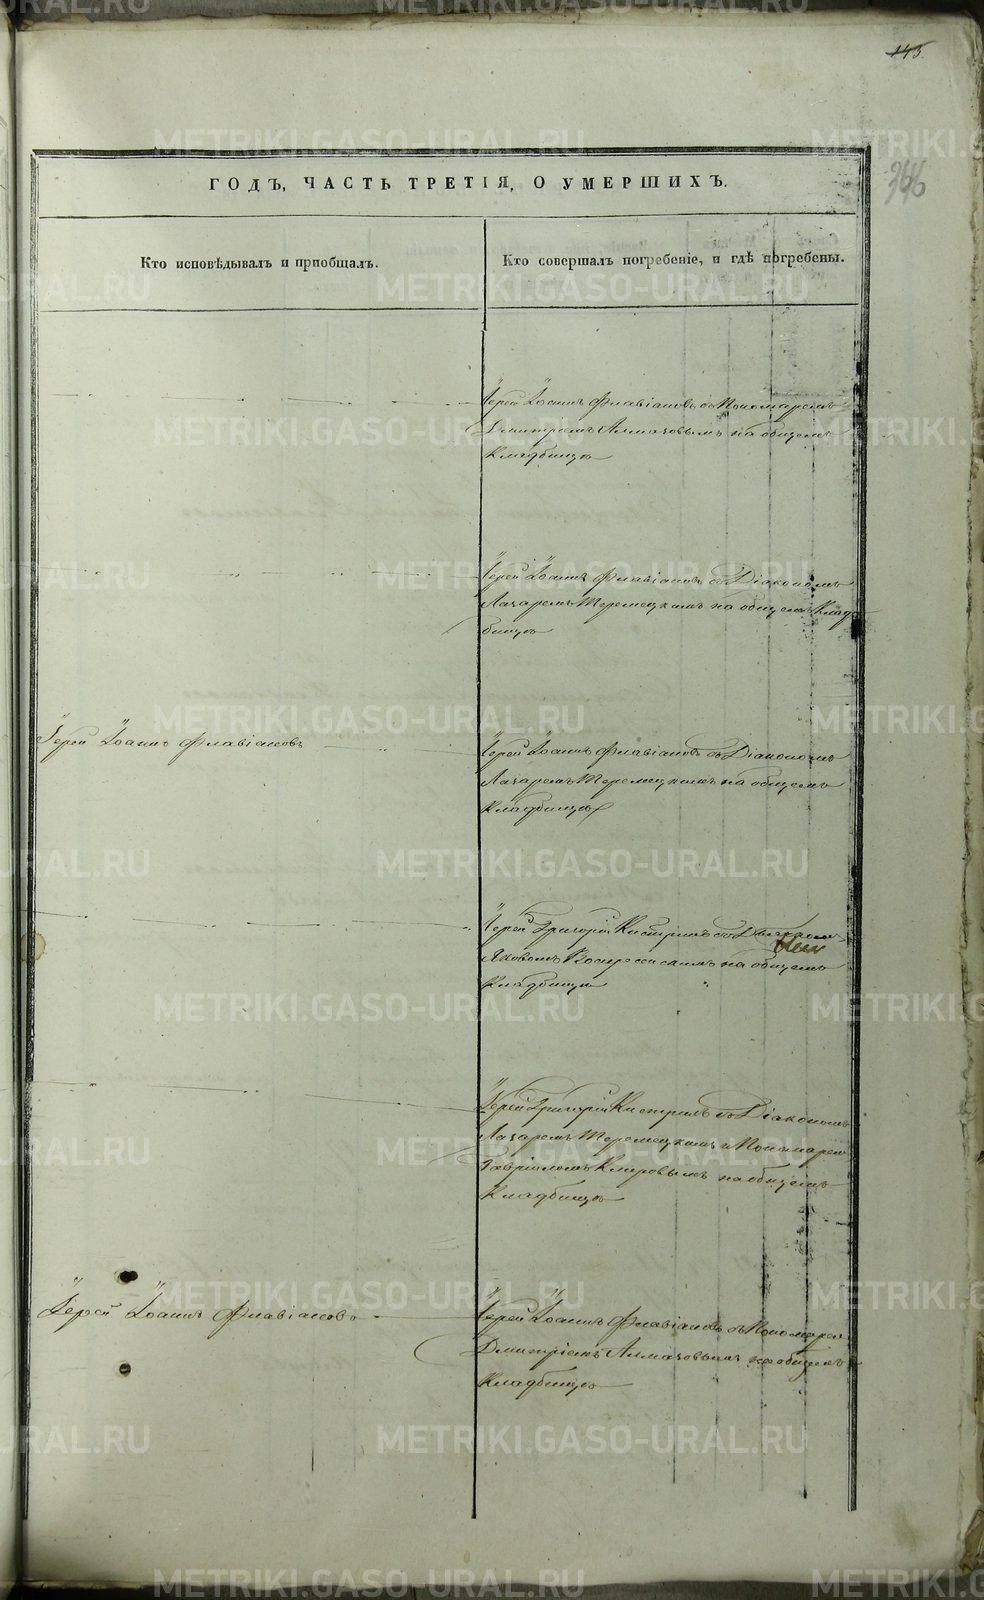 145
366
ГОДЪ, ЧАСТЬ ТРЕТІЯ, О УМЕРШИХЪ.
Кто исповѣдывалъ и пріобщалъ.
Кто совершалъ погребеніе, и гдѣ погребены.
Іерей Іоаннъ Флавіановъ съ Пономаремъ
Дмитріемъ Алмазовымъ на общемъ
кладбищѣ
Іерей Іоаннъ Флавіановъ съ Діакономъ
Лазаремъ Теремецкимъ на общемъ клад
бищѣ
Іерей Іоаннъ Флавіановъ
Іерей Іоаннъ Флавіановъ съ Діакономъ
Лазаремъ Теремецкимъ на общемъ
кладбищѣ
Іерей Григорій Кистринъ съ
на общемъ
кладбищѣ
Іерей Григорій Кистринъ съ Діакономъ
Лазаремъ Теремецкимъ и Пономаремъ
Гавріиломъ Кипровымъ на общемъ
кладбищѣ
Іерей Іоаннъ Флавіановъ
Іерей Іоаннъ Флавіановъ съ Пономаремъ
Дмитріемъ Алмазовымъ на общемъ
кладбищѣ
METRIKI.GASO-URAL.RU